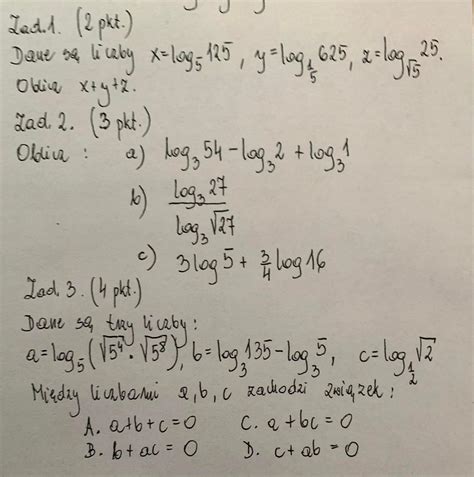 Zad.1. (2 pkt.)
Dane są liczby x=log₅125, y=log_{1/5}625, z=log_{√5}25.
Oblicz x+y+z.
Zad 2. (3 pkt.)
Oblicz : a) log₃54-log₃2+log₃1
b) log₃27/log₃√27
c) 3log5+3/4log16
Zad 3. (4 pkt.)
Dane są trzy liczby:
a=log₅(√5⁴·√5⁸), b=log₃135-log₃5, c=log_{1/2}√2
Między liczbami a,b,c zachodzi związek:
A. a+b+c=0 C. a+bc=0
B. b+ac=0 D. c+ab=0